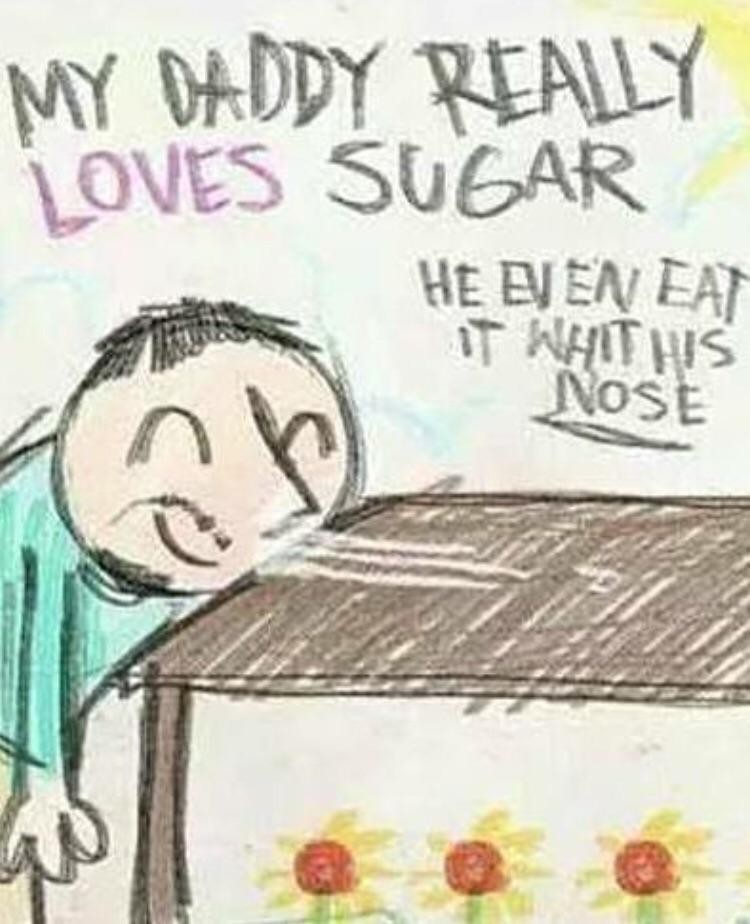 MY DADDY REALLY
LOVES SUGAR
HE EVEN EAT
IT WHIT HIS
NOSE